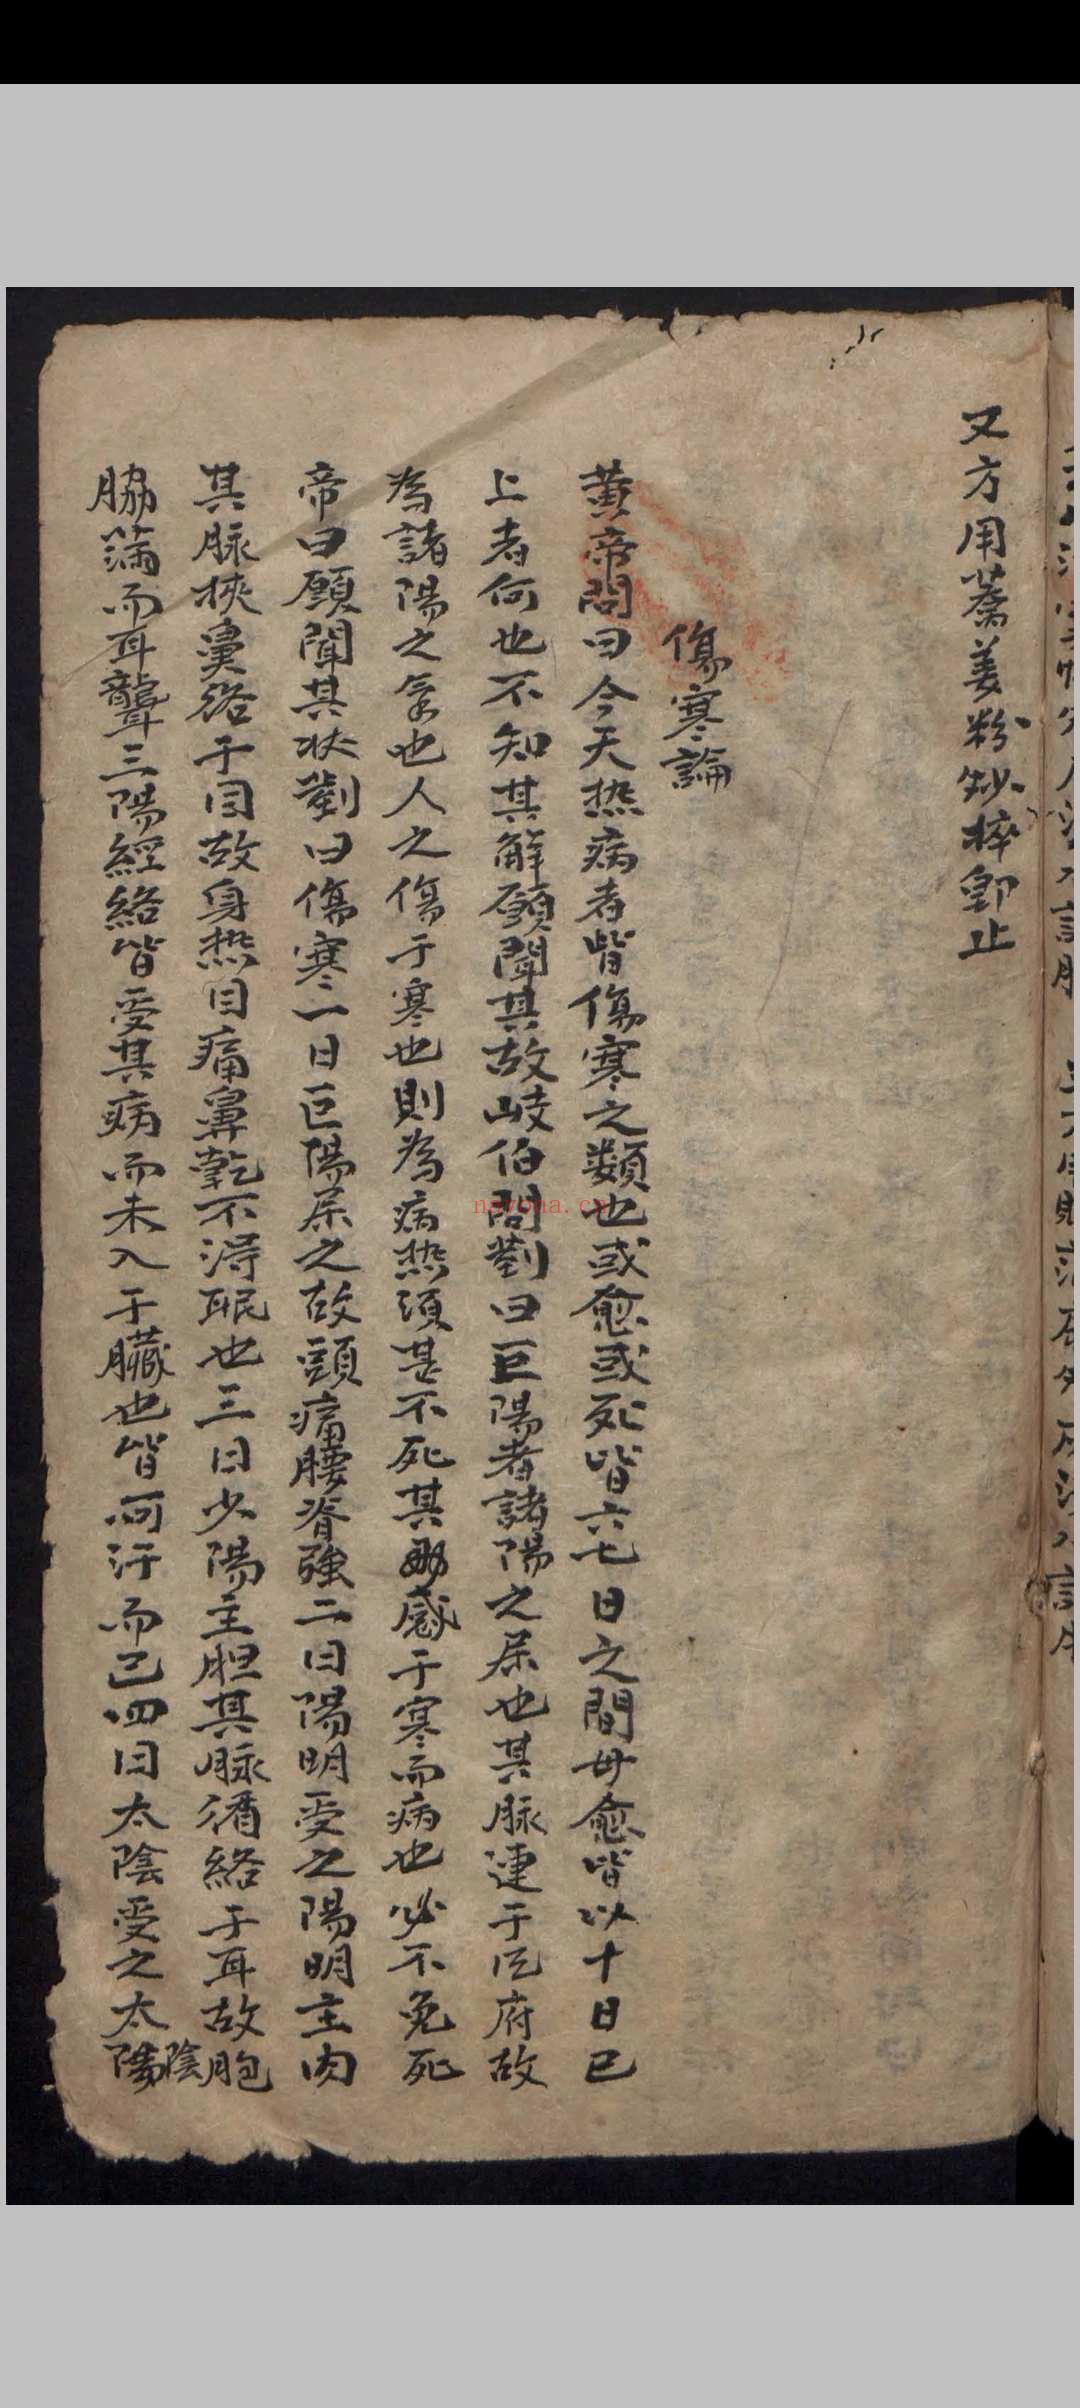 又方用藁姜粉炒擦即止
傷寒論
黄帝問曰今天热病者皆傷寒之類也或愈或死皆六七日之間毋愈皆以十日已
上者何也不知其解願聞其故岐伯問劄曰巨陽者諸陽之屎也其脉連于風府故
為諸陽之氣也人之傷于寒也則為病热須甚不死其两感于寒而病也必不免死
帝曰願聞其状劄曰傷寒一日巨陽屎之故頭痛腰脊強二曰陽明受之陽明主肉
其脉挾鼻络于目故身热目痛鼻乾不淂眠也三日少陽主胆其脉循絡于耳故胞
脇滿而耳聾三陽經絡皆受其病而未入于臟也皆可汗而已四日太陰受之太陽陰
nayona.cn